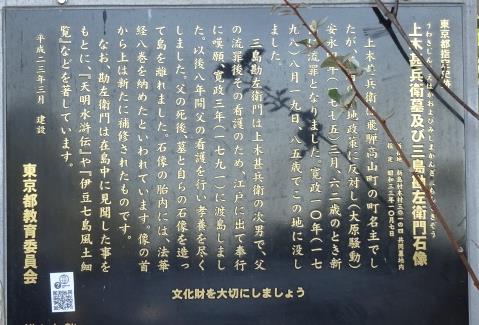 東京都指定史跡
上木甚兵衛墓及び三島勘左衛門石像
うわきじんべえはかおよびみしまかんざえもんせきぞう
新島村本村三の一の四 共同墓地内
指定 昭和三三年一〇月七日
上木甚兵衛は飛騨高山町の町名主でし
たが、地政策に反対し(大原騒動)
安永 年(一七七五)三月、六二歳のとき新
流罪となりました。寛政一〇年(一七
九八)八月一九日、八五歳でこの地に没し
ました。
三島勘左衛門は上木甚兵衛の次男で、父
の流罪後、その看護のため、江戸に出て奉行
に嘆願、寛政三年(一七九一)に渡島しまし
た。以後八年間父の看護を行い孝養を尽く
しました。父の死後、墓と自らの石像を造っ
て島を離れました。石像の胎内には、法華
経八巻を納めたといわれています。像の首
から上は新たに補修されたものです。
なお、勘左衛門は在島中に見聞した事を
もとに、『天明水滸伝』や『伊豆七島風土細
覧』などを著しています。
平成二三年三月 建設
東京都教育委員会
文化財を大切にしましょう